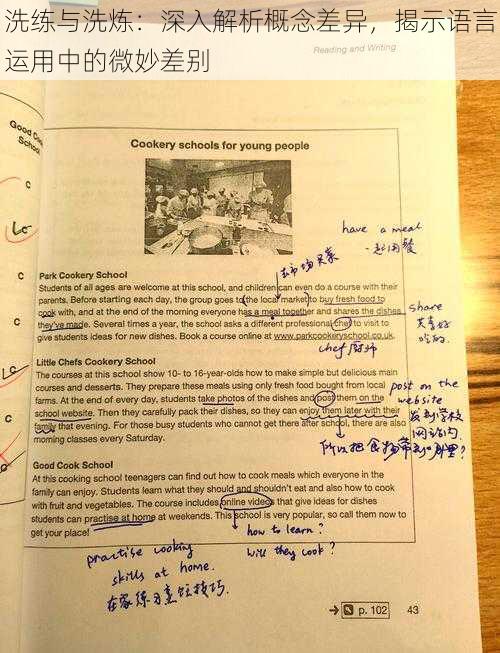 洗练与洗炼：深入解析概念差异，揭示语言
运用中的微妙差别
Reading and Writing
Good C
School
Cookery schools for young people
have a meal
一起用餐
去市场买菜
Park Cookery School
Students of all ages are welcome at this school, and children can even do a course with their
parents. Before starting each day, the group goes to the local market to buy fresh food to
cook with, and at the end of the morning everyone has a meal together and shares the dishes
they've made. Several times a year, the school asks a different professional chef to visit to
give students ideas for new dishes. Book a course online at www.parkcookeryschool.co.uk.
share
共享好
吃的
chef 厨师
Little Chefs Cookery School
The courses at this school show 10- to 16-year-olds how to make simple but delicious main
courses and desserts. They prepare these meals using only fresh food bought from local
farms. At the end of every day, students take photos of the dishes and them on the
school website. Then they carefully pack their dishes, so they can enjoy them later with their
family that evening. For those busy students who cannot get there after school, there are also
morning classes every Saturday.
post on the
website
发到学校
网站内.
所以把食物带到哪里?
Good Cook School
At this cooking school teenagers can find out how to cook meals which everyone in the
family can enjoy. Students learn what they should and shouldn't eat and also how to cook
with fruit and vegetables. The course includes online videos that give ideas for dishes
students can practise at home at weekends. This school is very popular, so call them now to
get your place!
how to learn?
will they cook?
practise cooking
skills at home.
在家练习烹饪技巧.
C
Lc
C
C
Lc
C
C
p. 102
43